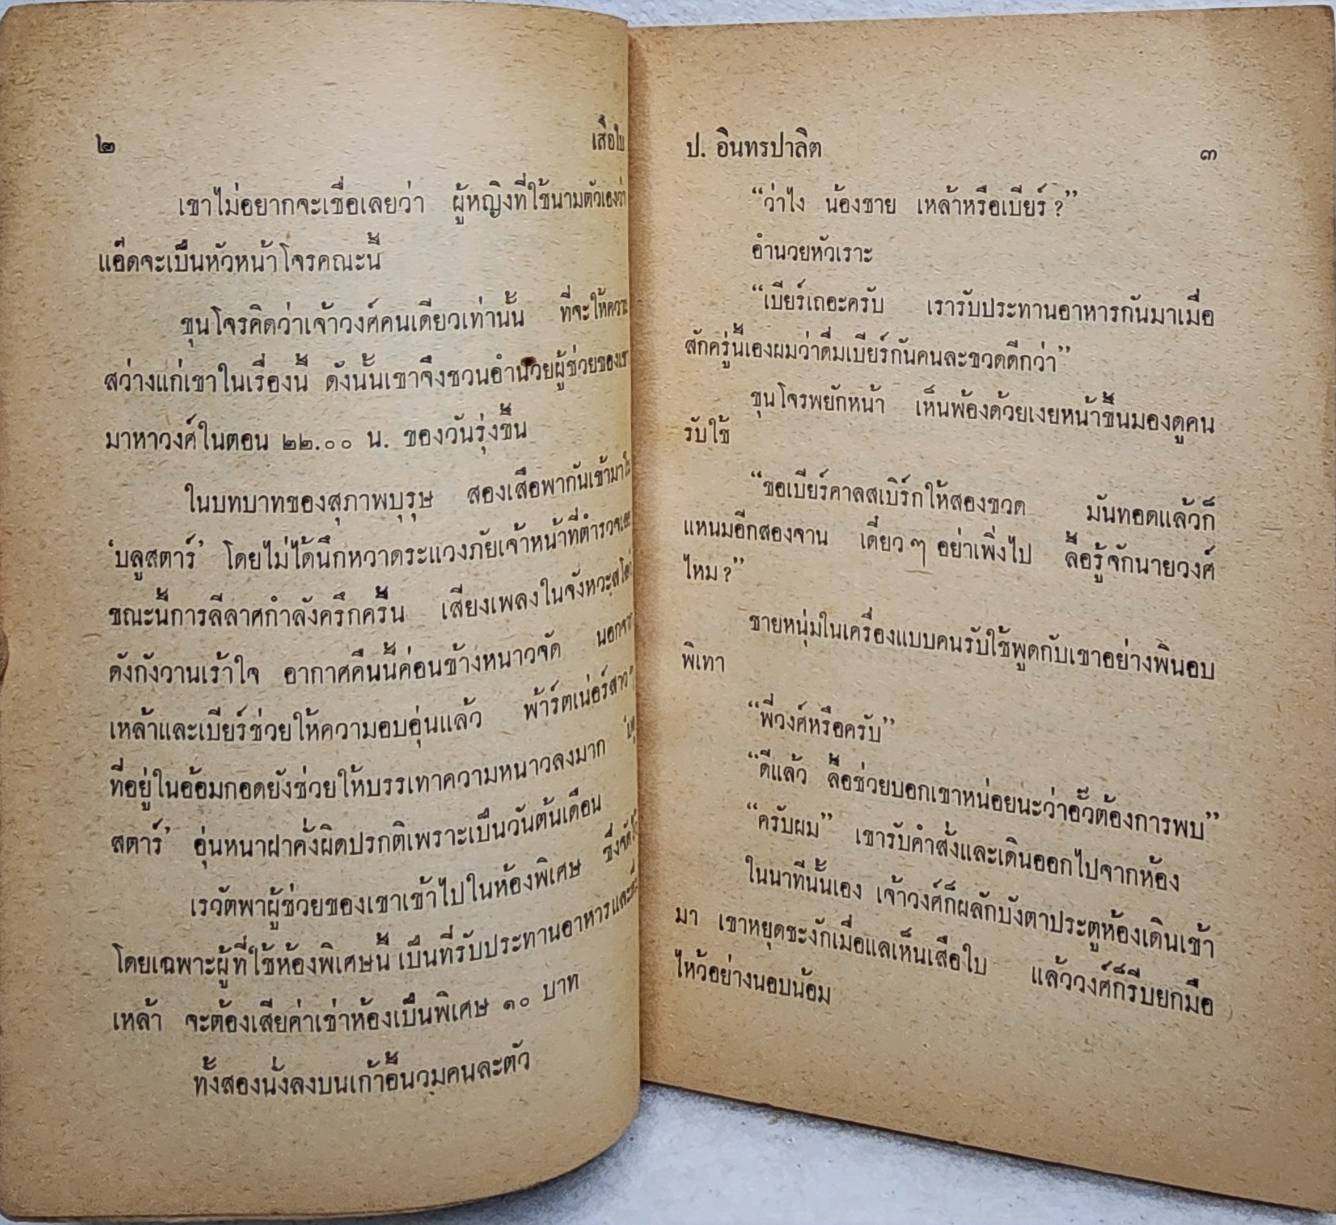 ๒ เสือใบ
เขาไม่อยากจะเชื่อเลยว่า ผู้หญิงที่ใช้นามตัวเองว่า
แอ๊ดจะเป็นหัวหน้าโจรคณะนี้
ขุนโจรคิดว่าเจ้าวงศ์คนเดียวเท่านั้น ที่จะให้ความ
สว่างแก่เขาในเรื่องนี้ ดังนั้นเขาจึงชวนอำนวยผู้ช่วยของเขา
มาหาวงศ์ในตอน ๒๒.๐๐ น. ของวันรุ่งขึ้น
ในบทบาทของสุภาพบุรุษ สองเสือพากันเข้ามาใน
'บลูสตาร์' โดยไม่ได้นึกหวาดระแวงภัยเจ้าหน้าที่ตำรวจเลย
ขณะนี้การลีลาศกำลังครึกครื้น เสียงเพลงในจังหวะสโลว์
ดังกังวานเร้าใจ อากาศคืนนี้ค่อนข้างหนาวจัด นอกจาก
เหล้าและเบียร์ช่วยให้ความอบอุ่นแล้ว พ้าร์ตเน่อร์สาวๆ
ที่อยู่ในอ้อมกอดยังช่วยให้บรรเทาความหนาวลงมาก 'บลู
สตาร์' อุ่นหนาฝาคั่งผิดปรกติเพราะเป็นวันต้นเดือน
เรวัตพาผู้ช่วยของเขาเข้าไปในห้องพิเศษ ซึ่งจัดไว้
โดยเฉพาะผู้ที่ใช้ห้องพิเศษนี้ เป็นที่รับประทานอาหารและดื่ม
เหล้า จะต้องเสียค่าเช่าห้องเป็นพิเศษ ๑๐ บาท
ทั้งสองนั่งลงบนเก้าอี้นวมคนละตัว
ป. อินทรปาลิต ๓
“ว่าไง น้องชาย เหล้าหรือเบียร์ ?”
อำนวยหัวเราะ
“เบียร์เถอะครับ เรารับประทานอาหารกันมาเมื่อ
สักครู่นี้เองผมว่าดื่มเบียร์กันคนละขวดดีกว่า”
ขุนโจรพยักหน้า เห็นพ้องด้วยเงยหน้าขึ้นมองดูคน
รับใช้
“ขอเบียร์คาลสเบิร์กให้สองขวด มันทอดแล้วก็
แหนมอีกสองจาน เดี๋ยว ๆ อย่าเพิ่งไป ลื้อรู้จักนายวงศ์
ไหม ?”
ชายหนุ่มในเครื่องแบบคนรับใช้พูดกับเขาอย่างพินอบ
พิเทา
“พี่วงศ์หรือครับ”
“ดีแล้ว ลื้อช่วยบอกเขาหน่อยนะว่าอั๊วต้องการพบ”
“ครับผม” เขารับคำสั่งและเดินออกไปจากห้อง
ในนาทีนั้นเอง เจ้าวงศ์ก็ผลักบังตาประตูห้องเดินเข้า
มา เขาหยุดชะงักเมื่อแลเห็นเสือใบ แล้ววงศ์ก็รีบยกมือ
ไหว้อย่างนอบน้อม